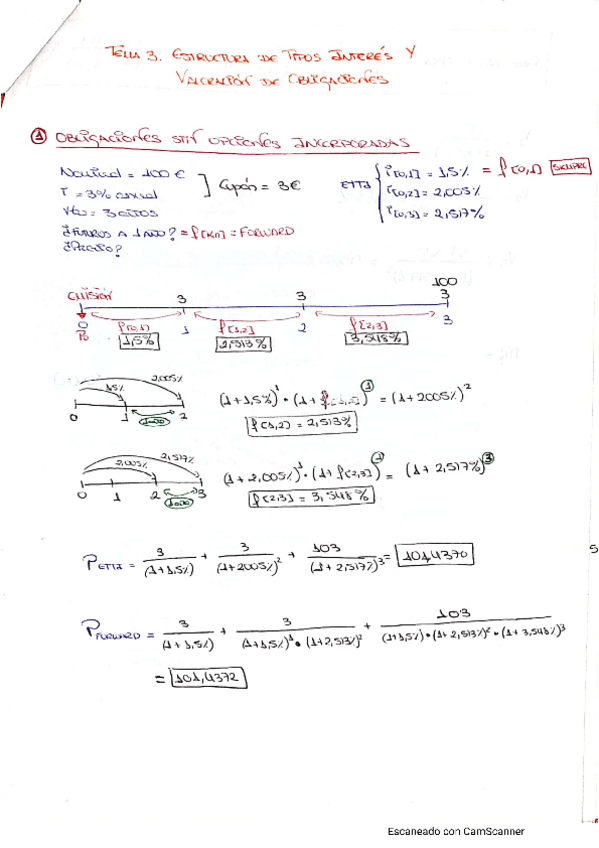 TEMA 3. ESTRUCTURA DE TIPOS INTERÉS Y
VALORACIÓN DE OBLIGACIONES
① OBLIGACIONES SIN OPCIONES INCORPORADAS
Nominal = 100 €
r = 3% anual
Vto = 3 años
] Cupón = 3€
ETTI { i[0,1] = 1,5% = f[0,1] SIEMPRE
i[0,2] = 2,005%
i[0,3] = 2,517%
¿FUTUROS A 1 AÑO? = f[k,n] = FORWARD
¿PRECIO?
100
EMISIÓN 3 3 3
0 1 2 3
P₀
f[0,1] f[1,2] f[2,3]
1,5% 2,513% 3,548%
2,005%
1,5%
0 1 2
1 año
(1+1,5%)¹ · (1+f[1,2])¹ = (1+2005%)²
f[1,2] = 2,513%
2,517%
2,005%
0 1 2 3
1 año
(1+2,005%)² · (1+f[2,3])¹ = (1+2,517%)³
f[2,3] = 3,548%
P ETTI = 3/(1+1,5%) + 3/(1+2005%)² + 103/(1+2,517%)³ = 101,4370
5
P FORWARD = 3/(1+1,5%) + 3/(1+1,5%)¹ · (1+2,513%)² + 103/(1+1,5%) · (1+2,513%)² · (1+3,548%)³
= 101,4372
Escaneado con CamScanner